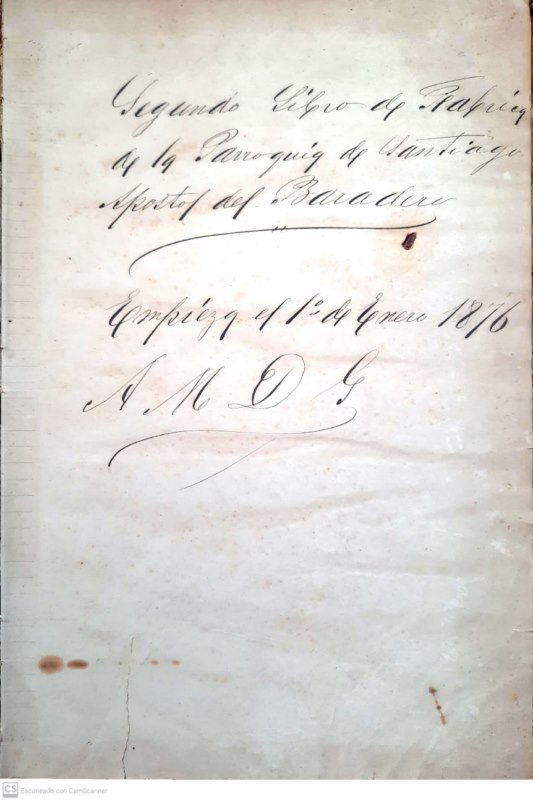 Segundo Libro de Fabrica
de la Parroquia de Santiago
Apostol del Baradero
Empieza el 1º de Enero 1876
A M D G
CS Escaneado con CamScanner